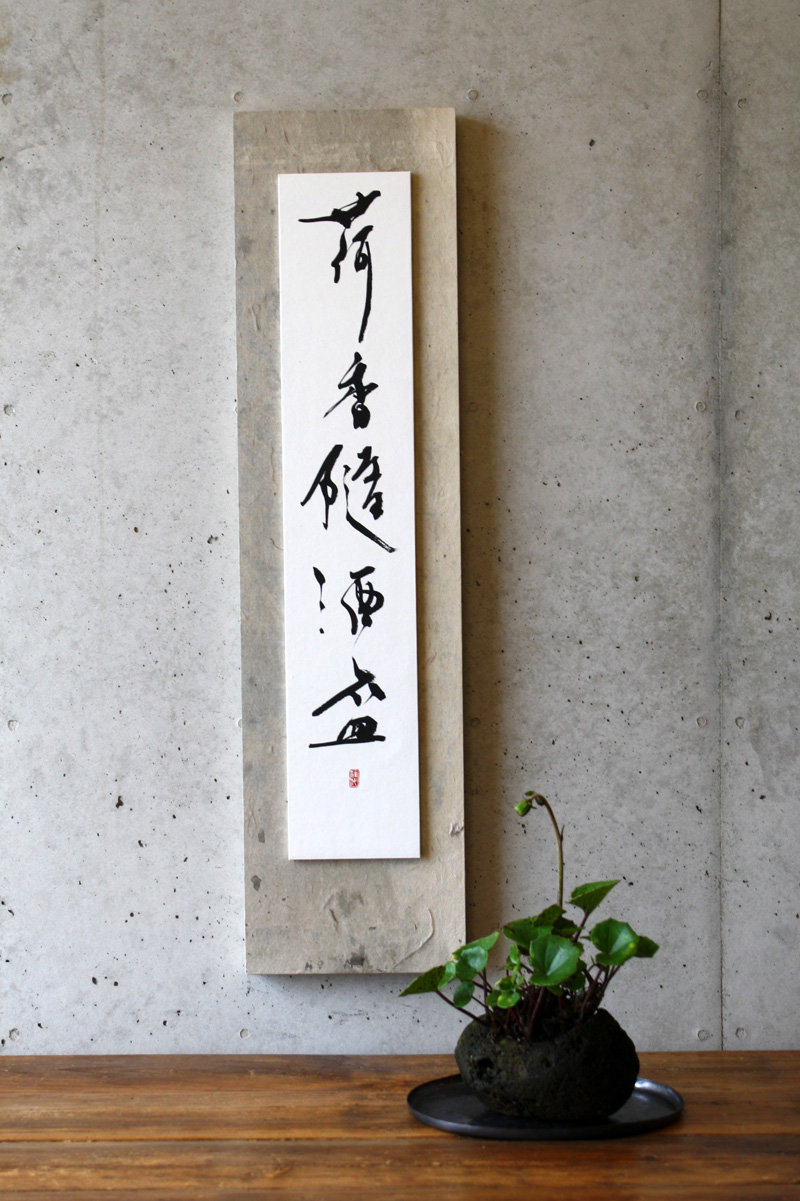 荷香隨酒盃